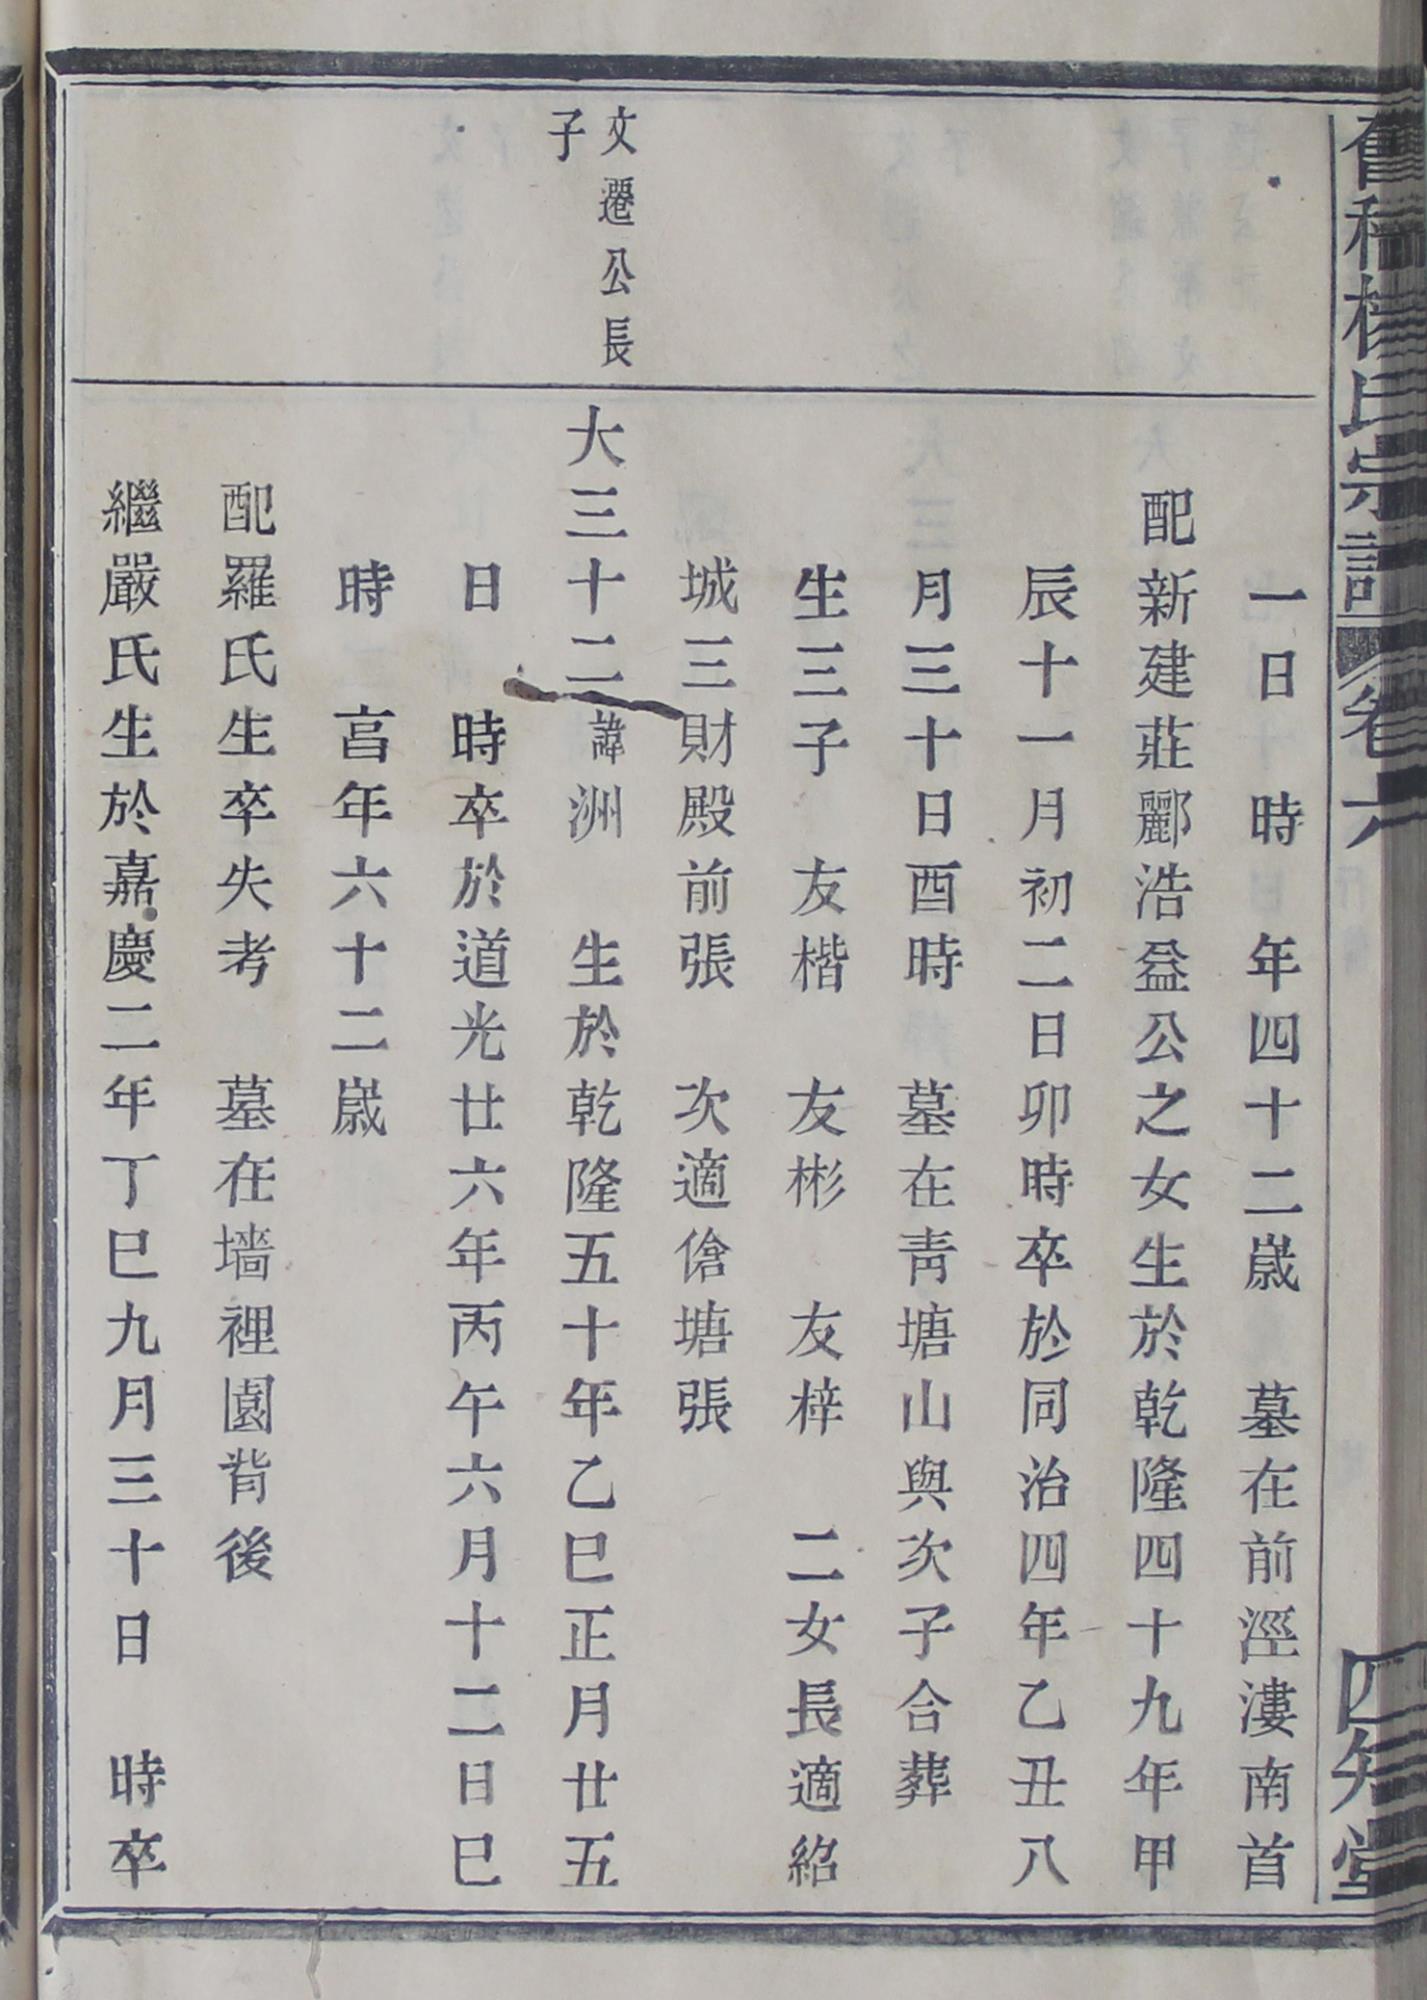 楊氏宗譜 卷六 四知堂
一日 時 年四十二歲 墓在前涇漊南首
配新建莊酈浩益公之女生於乾隆四十九年甲
辰十一月初二日卯時卒於同治四年乙丑八
月三十日酉時 墓在青塘山與次子合葬
生三子 友楷 友彬 友梓 二女長適紹
城三財殿前張 次適傖塘張
文遷公長
子
大三十二諱洲 生於乾隆五十年乙巳正月廿五
日 時卒於道光廿六年丙午六月十二日巳
時 亯年六十二歲
配羅氏生卒失考 墓在墻裡園背後
繼嚴氏生於嘉慶二年丁巳九月三十日 時卒